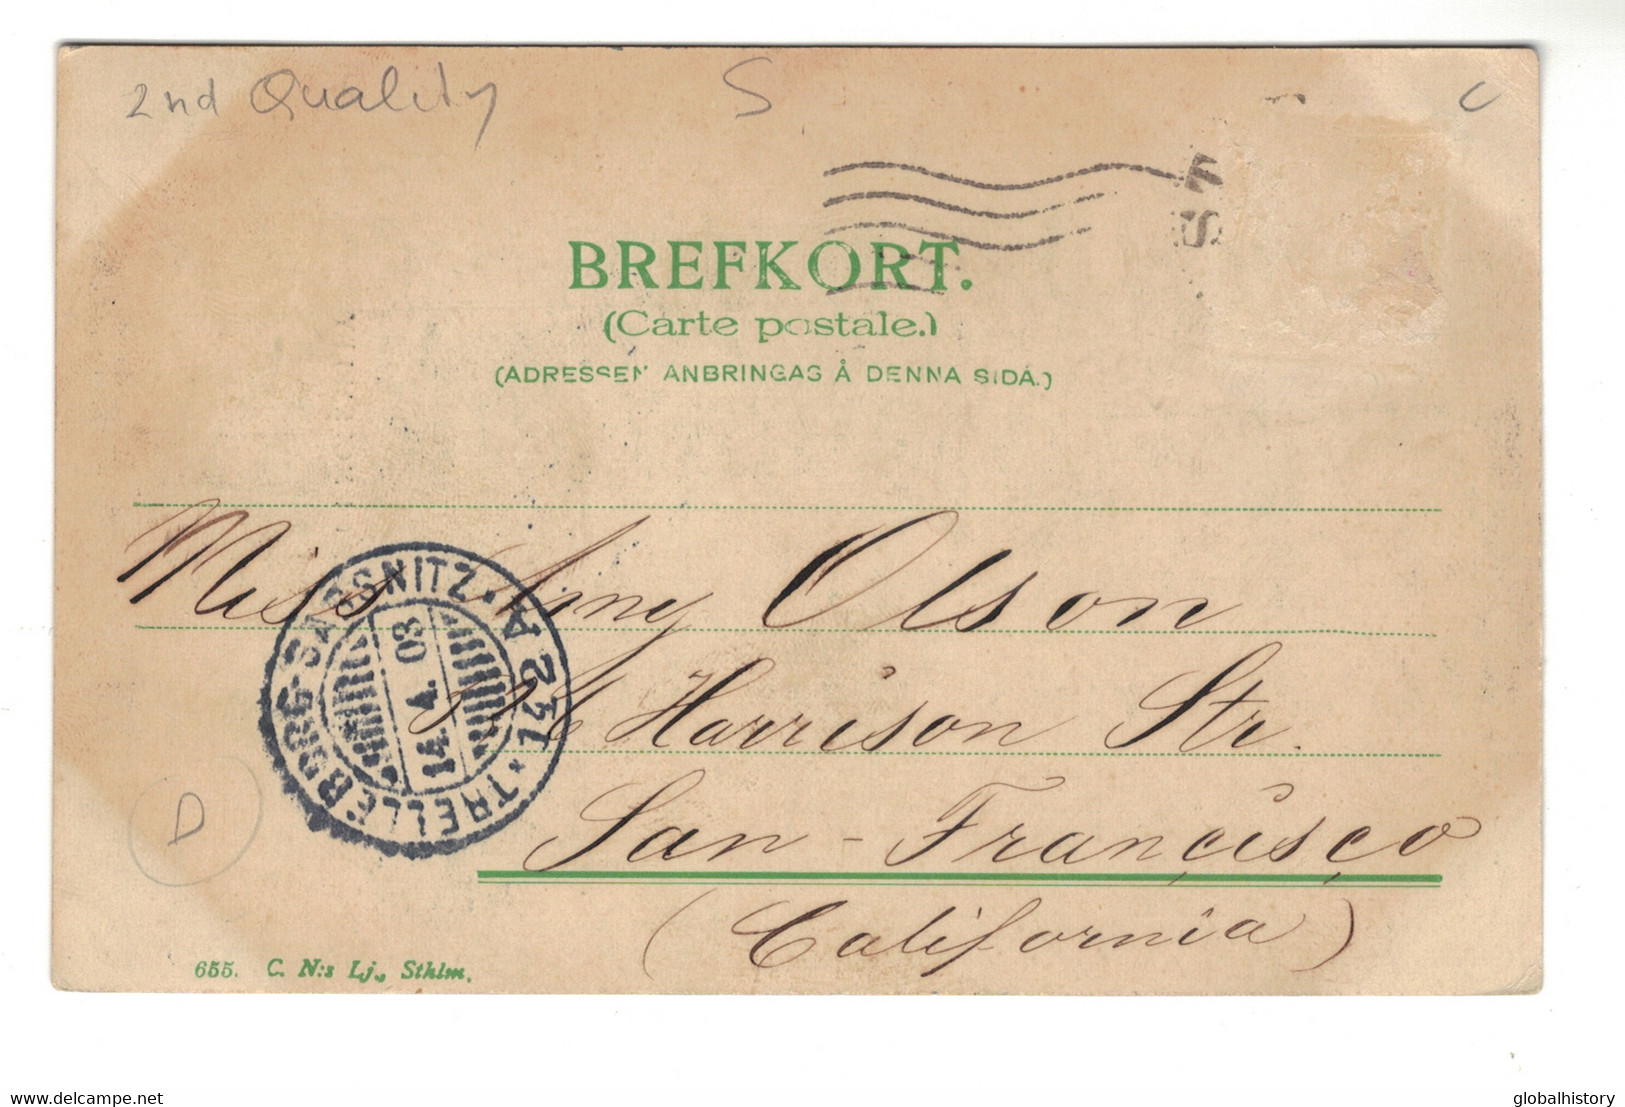 2nd Quality S
BREFKORT.
(Carte postale.)
(ADRESSEN ANBRINGAS Å DENNA SIDA.)
Miss Olson
Harrison Str.
San-Françisço
(California)
TRELLEBORG-SASSNITZ
14.4.03
D
655. C. N:s Lj., Sthlm.
www.delcampe.net
globalhistory